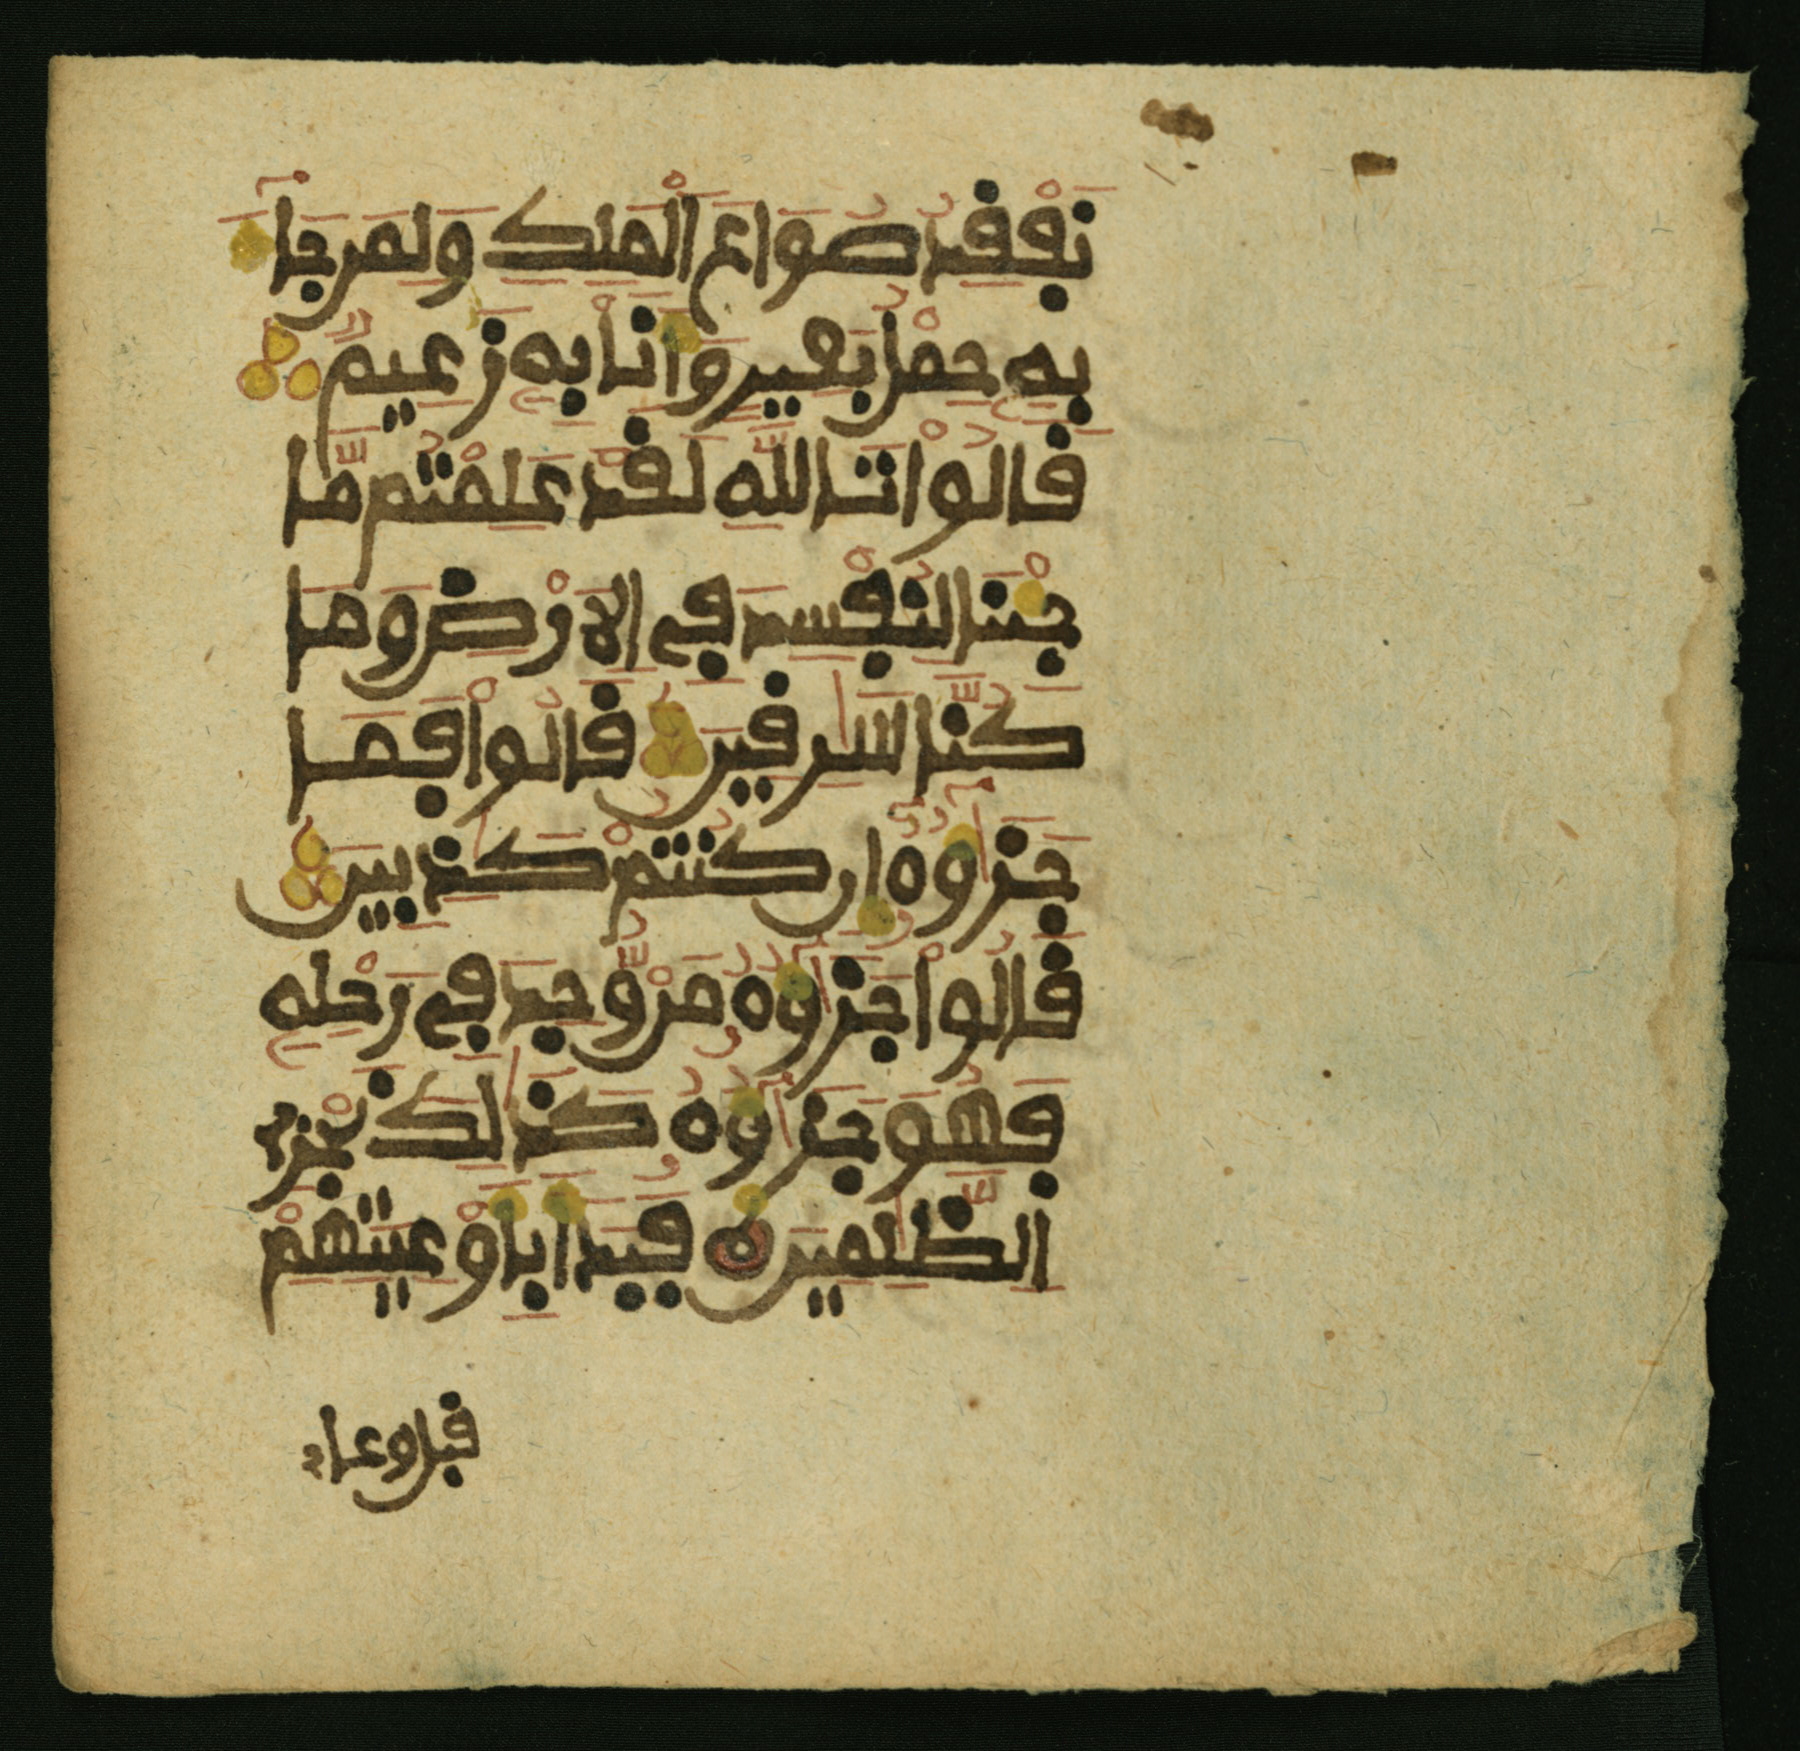 نَفْقِدُ صُوَاعَ ٱلْمَلِكِ وَلِمَن جَآءَ
بِهِۦ حِمْلُ بَعِيرٍ وَأَنَا بِهِۦ زَعِيمٌ
قَالُوا۟ تَاللَّهِ لَقَدْ عَلِمْتُم مَّا
جِئْنَا لِنُفْسِدَ فِى الَارْضِ وَمَا
كُنَّا سَٰرِقِينَ قَالُوا۟ فَمَا
جَزَٰٓؤُهُۥٓ إِن كُنتُمْ كَٰذِبِينَ
قَالُوا۟ جَزَٰٓؤُهُۥ مَنْ وُّجِدَ فِى رَحْلِهِۦ
فَهُوَ جَزَٰٓؤُهُۥ كَذَٰلِكَ نَجْزِى
الظَّٰلِمِينَ فَبَدَأَ بِأَوْعِيَتِهِمْ
قبل وعاء